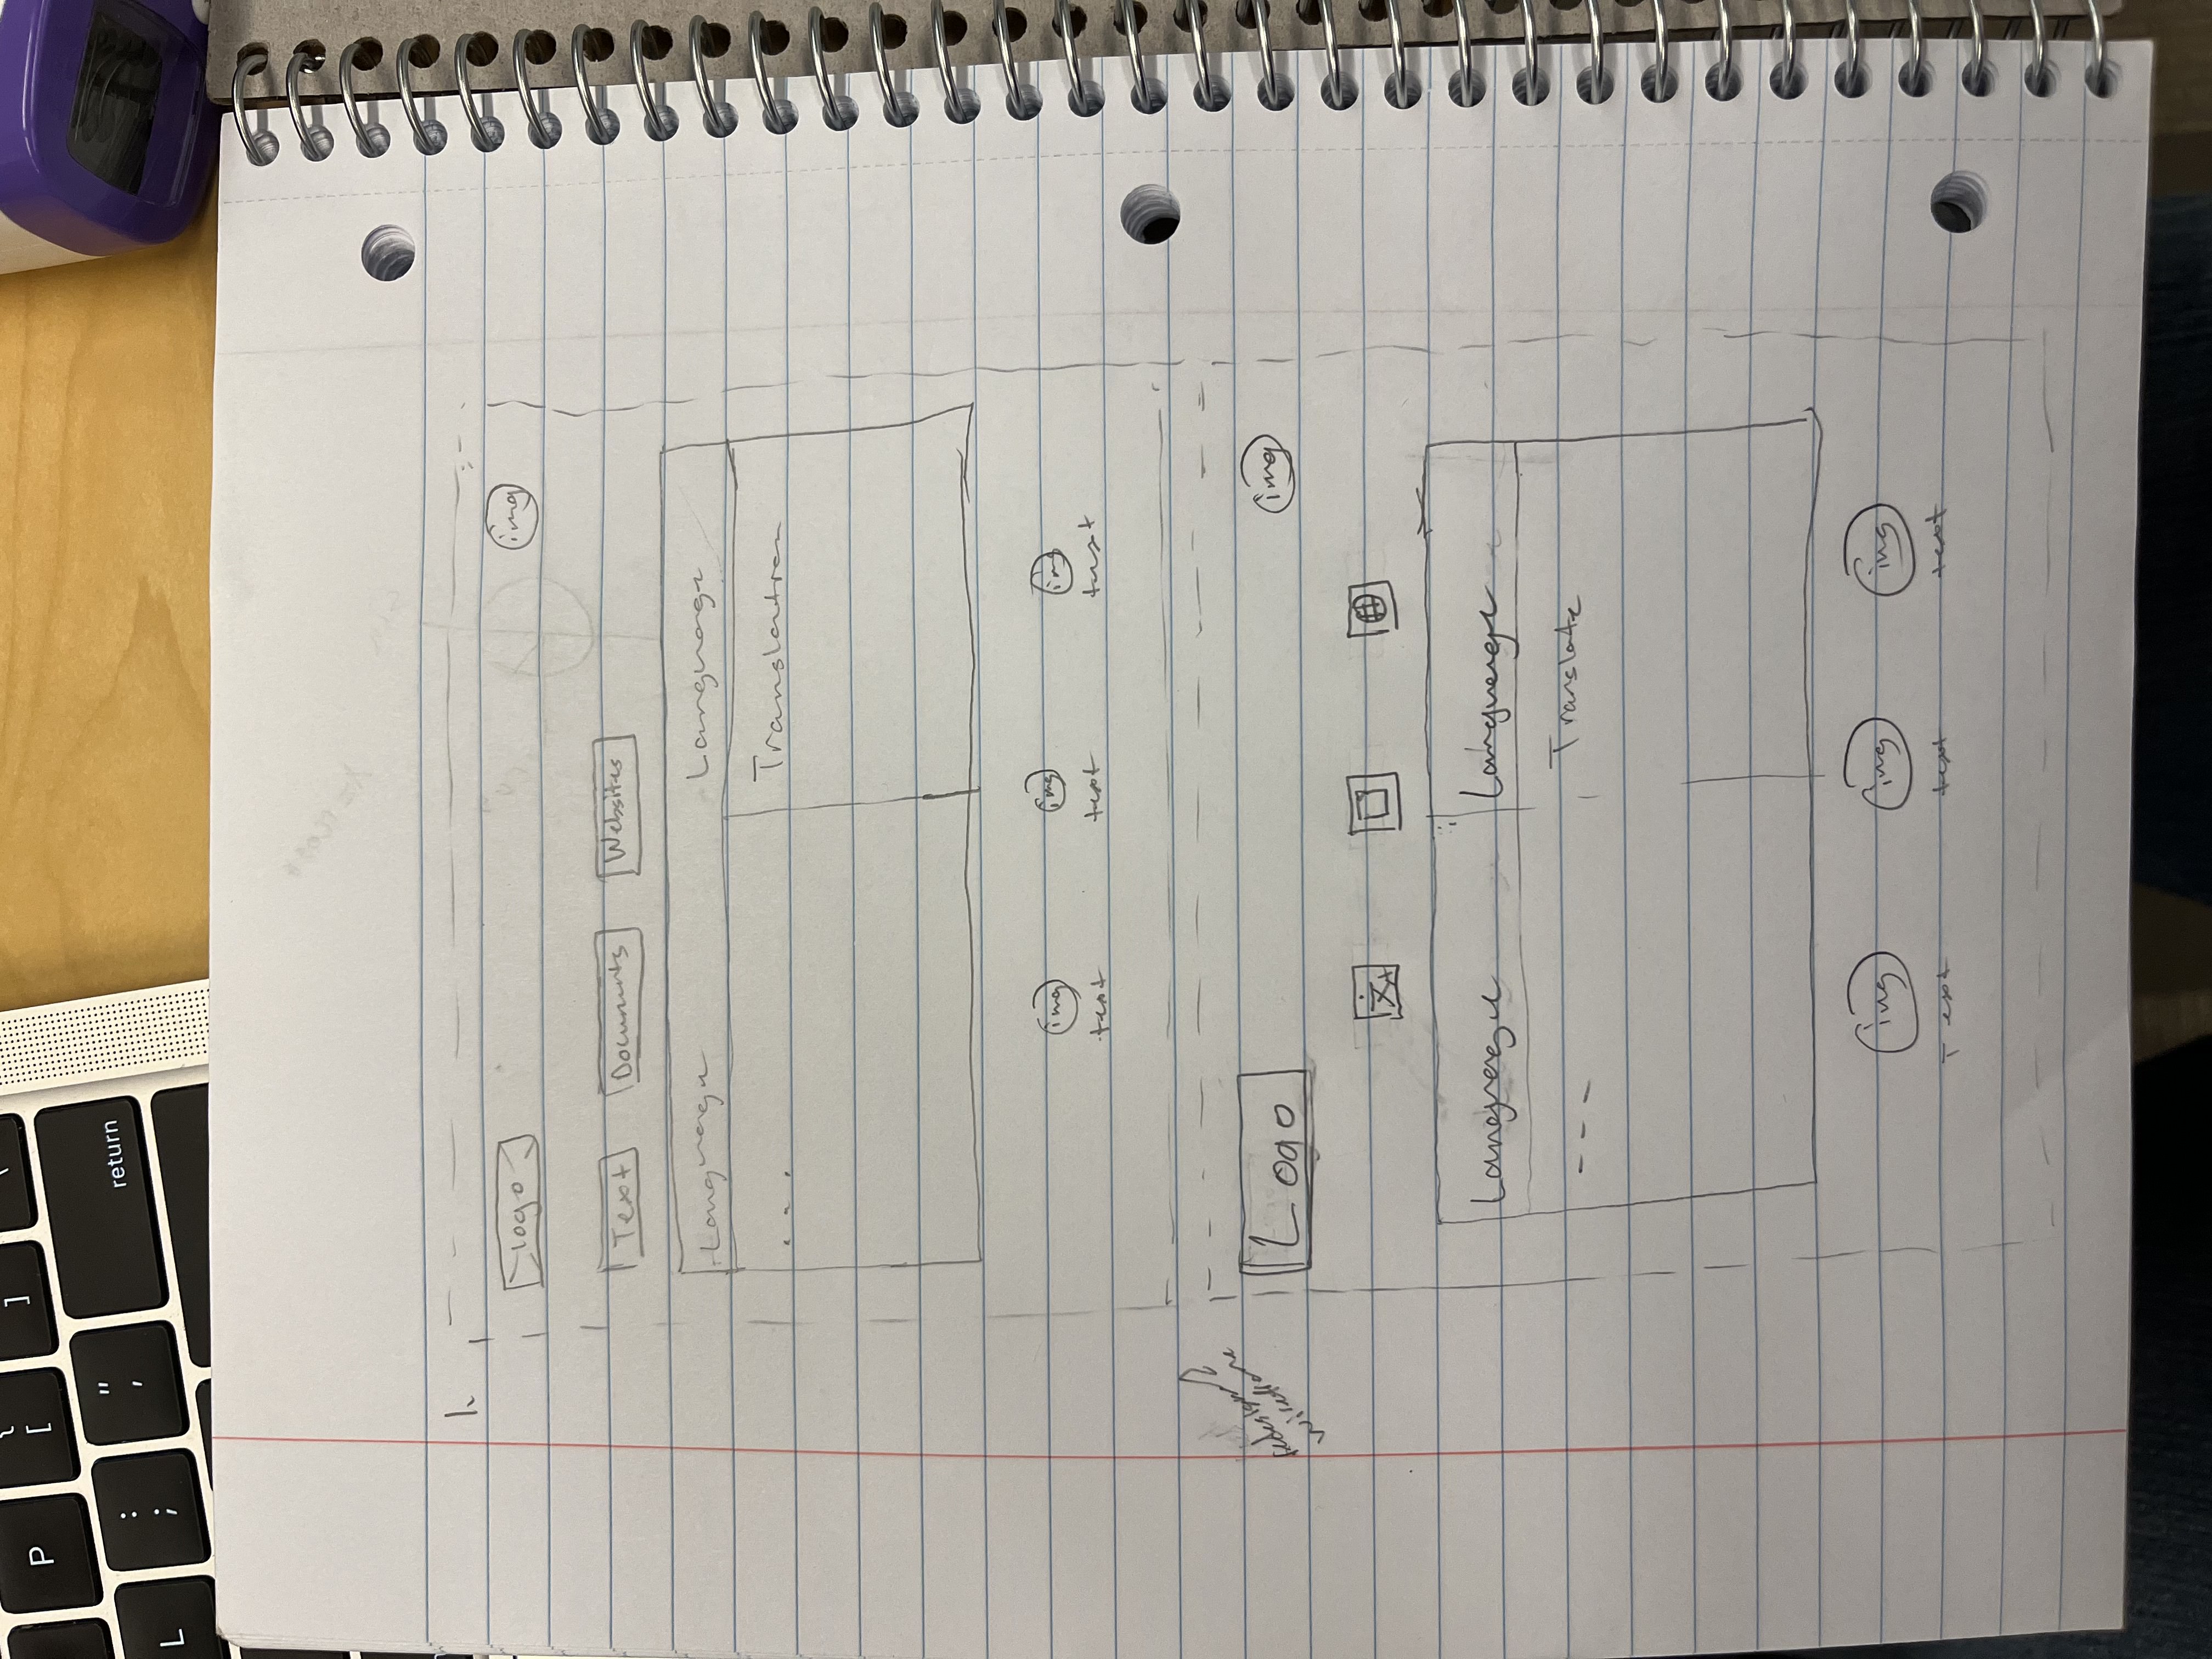 P
{
[
]
\
L
:
;
"
'
return
1.
logo
img
Text Documents Websites
Language Language
... Translation
img img img
text text text
redesigned
wireframe
Logo
img
Language Language
--- Translate
img img img
Text text text